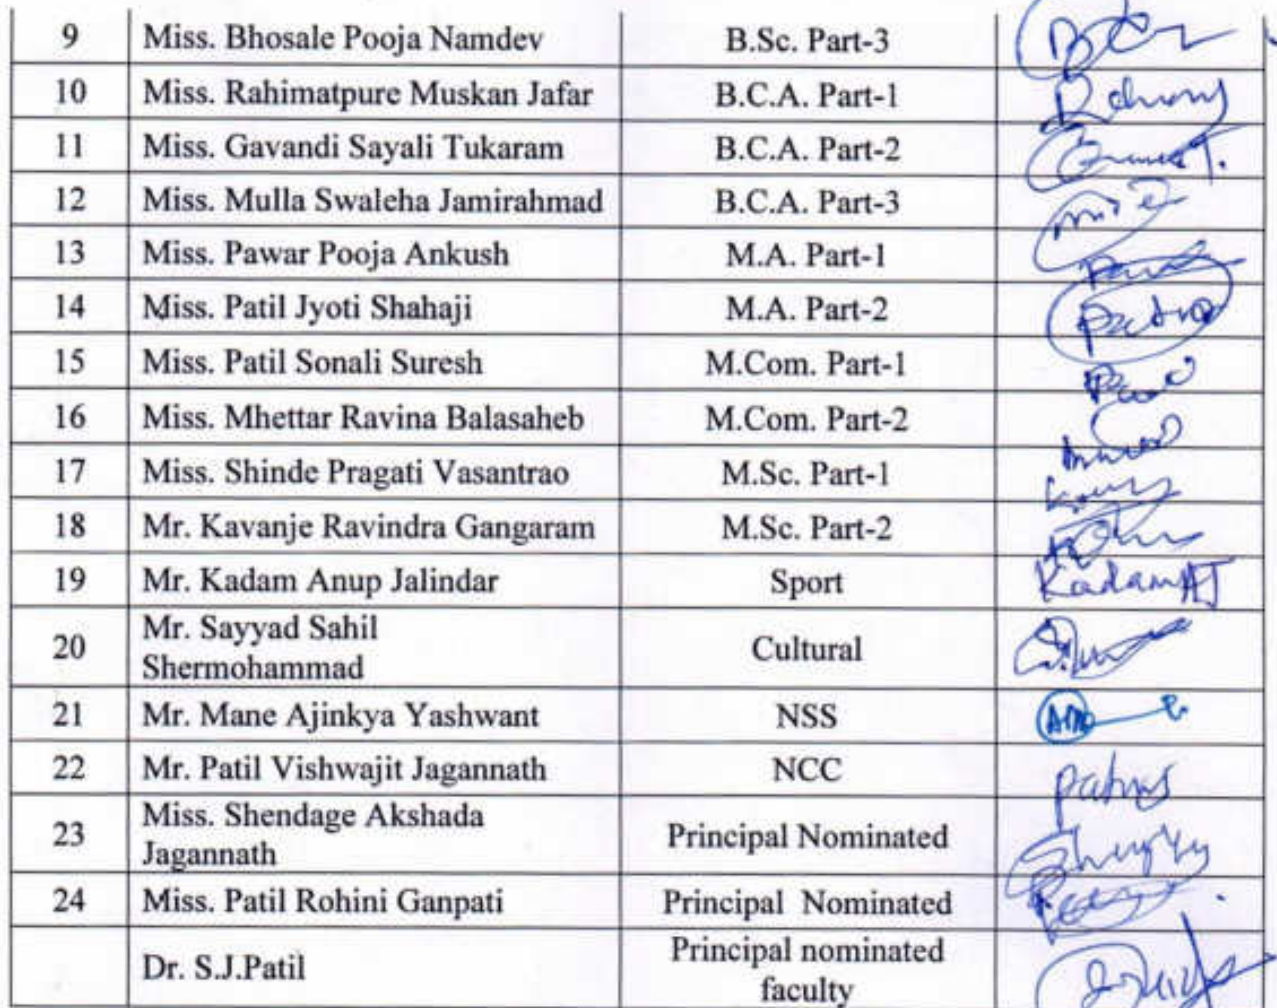 9 Miss. Bhosale Pooja Namdev B.Sc. Part-3
10 Miss. Rahimatpure Muskan Jafar B.C.A. Part-1
11 Miss. Gavandi Sayali Tukaram B.C.A. Part-2
12 Miss. Mulla Swaleha Jamirahmad B.C.A. Part-3
13 Miss. Pawar Pooja Ankush M.A. Part-1
14 Miss. Patil Jyoti Shahaji M.A. Part-2
15 Miss. Patil Sonali Suresh M.Com. Part-1
16 Miss. Mhettar Ravina Balasaheb M.Com. Part-2
17 Miss. Shinde Pragati Vasantrao M.Sc. Part-1
18 Mr. Kavanje Ravindra Gangaram M.Sc. Part-2
19 Mr. Kadam Anup Jalindar Sport Kadam AJ
20 Mr. Sayyad Sahil
Shermohammad Cultural
21 Mr. Mane Ajinkya Yashwant NSS
22 Mr. Patil Vishwajit Jagannath NCC
23 Miss. Shendage Akshada
Jagannath Principal Nominated
24 Miss. Patil Rohini Ganpati Principal Nominated
Dr. S.J.Patil Principal nominated
faculty